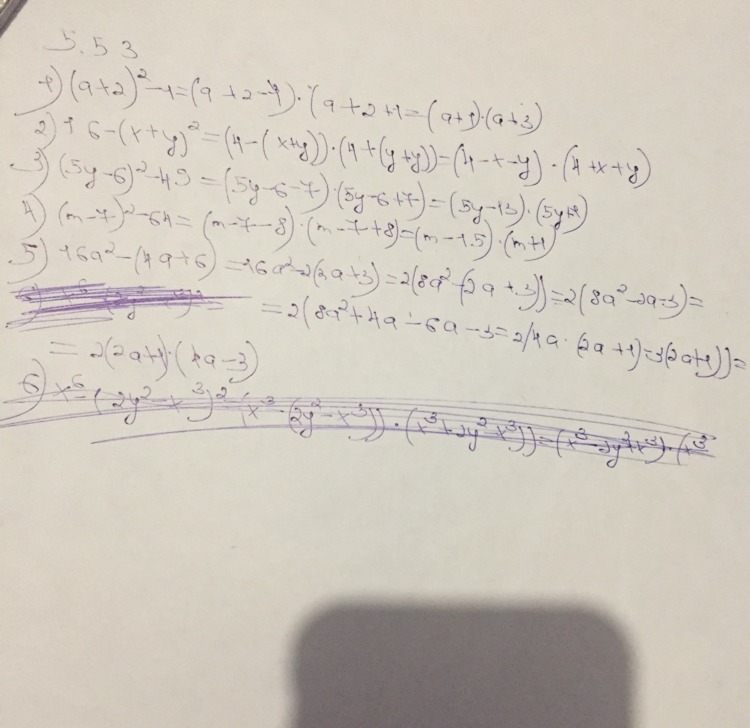 5.53
1) (a+2)² -1=(a+2-1)·(a+2+1=(a+1)·(a+3)
2) 16-(x+y)² =(4-(x+y))·(4+(y+y))=(4-x-y)·(4+x+y)
3) (5y-6)²-49=(5y-6-7)·(5y-6+7)=(5y-13)·(5y+1)
4) (m-7)²-64=(m-7-8)·(m-7+8)=(m-15)·(m+1)
5) 16a²-(4a+6)=16a²-2(2a+3)=2(8a²-(2a+3))=2(8a²-2a-3)=
=2(8a²+4a-6a-3=2(4a·(2a+1)-3(2a+1))=
=2(2a+1)·(4a-3)
6) x⁶-(2y²-x³)²=(x³-(2y²-x³))·(x³+2y²-x³))=(x³-2y²+x³)·(x³